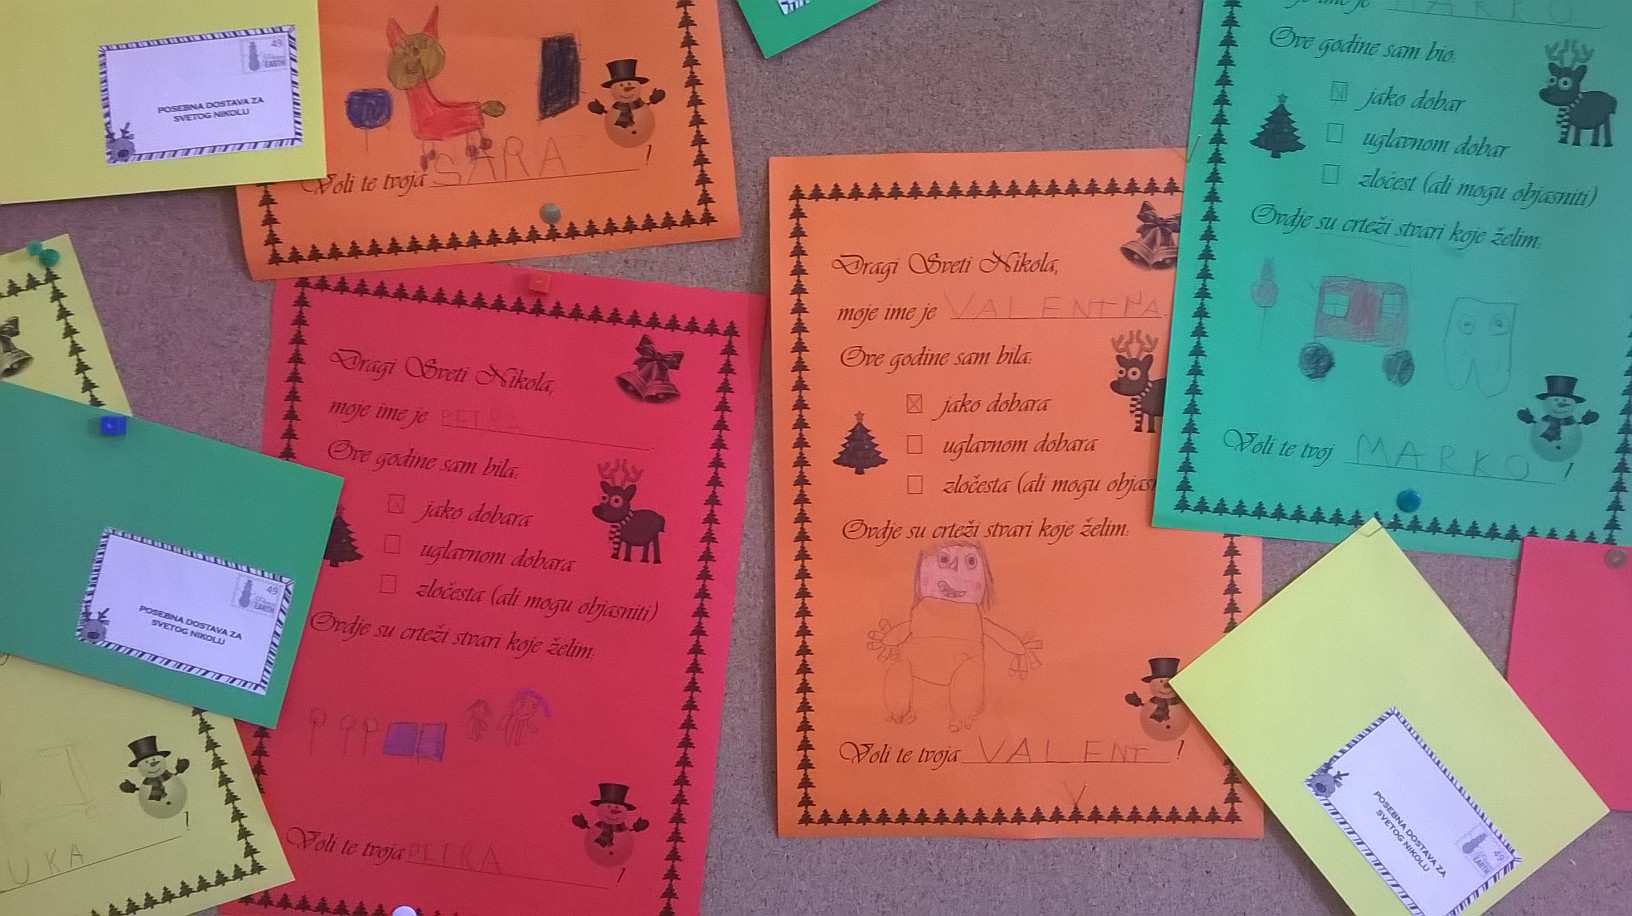 49
EARTH
POSEBNA DOSTAVA ZA
SVETOG NIKOLU
Voli te tvoja SARA !
Dragi Sveti Nikola,
moje ime je PETRA
Ove godine sam bila:
jako dobara
uglavnom dobara
zločesta (ali mogu objasniti)
Ovdje su crteži stvari koje želim:
Voli te tvoja PETRA !
49
EARTH
POSEBNA DOSTAVA ZA
SVETOG NIKOLU
UKA !
Dragi Sveti Nikola,
moje ime je VALENTINA.
Ove godine sam bila:
jako dobara
uglavnom dobara
zločesta (ali mogu objas
Ovdje su crteži stvari koje želim:
Voli te tvoja VALENT !
moje ime je MARKO
Ove godine sam bio:
jako dobar
uglavnom dobar
zločest (ali mogu objasniti)
Ovdje su crteži stvari koje želim:
Voli te tvoj MARKO !
POSEBNA DOSTAVA ZA
SVETOG NIKOLU
49
EARTH